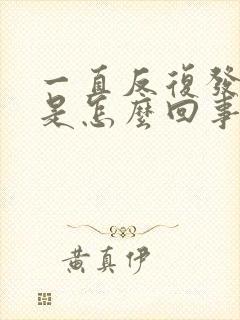 一直反復發
是怎麼回事
黃真伊